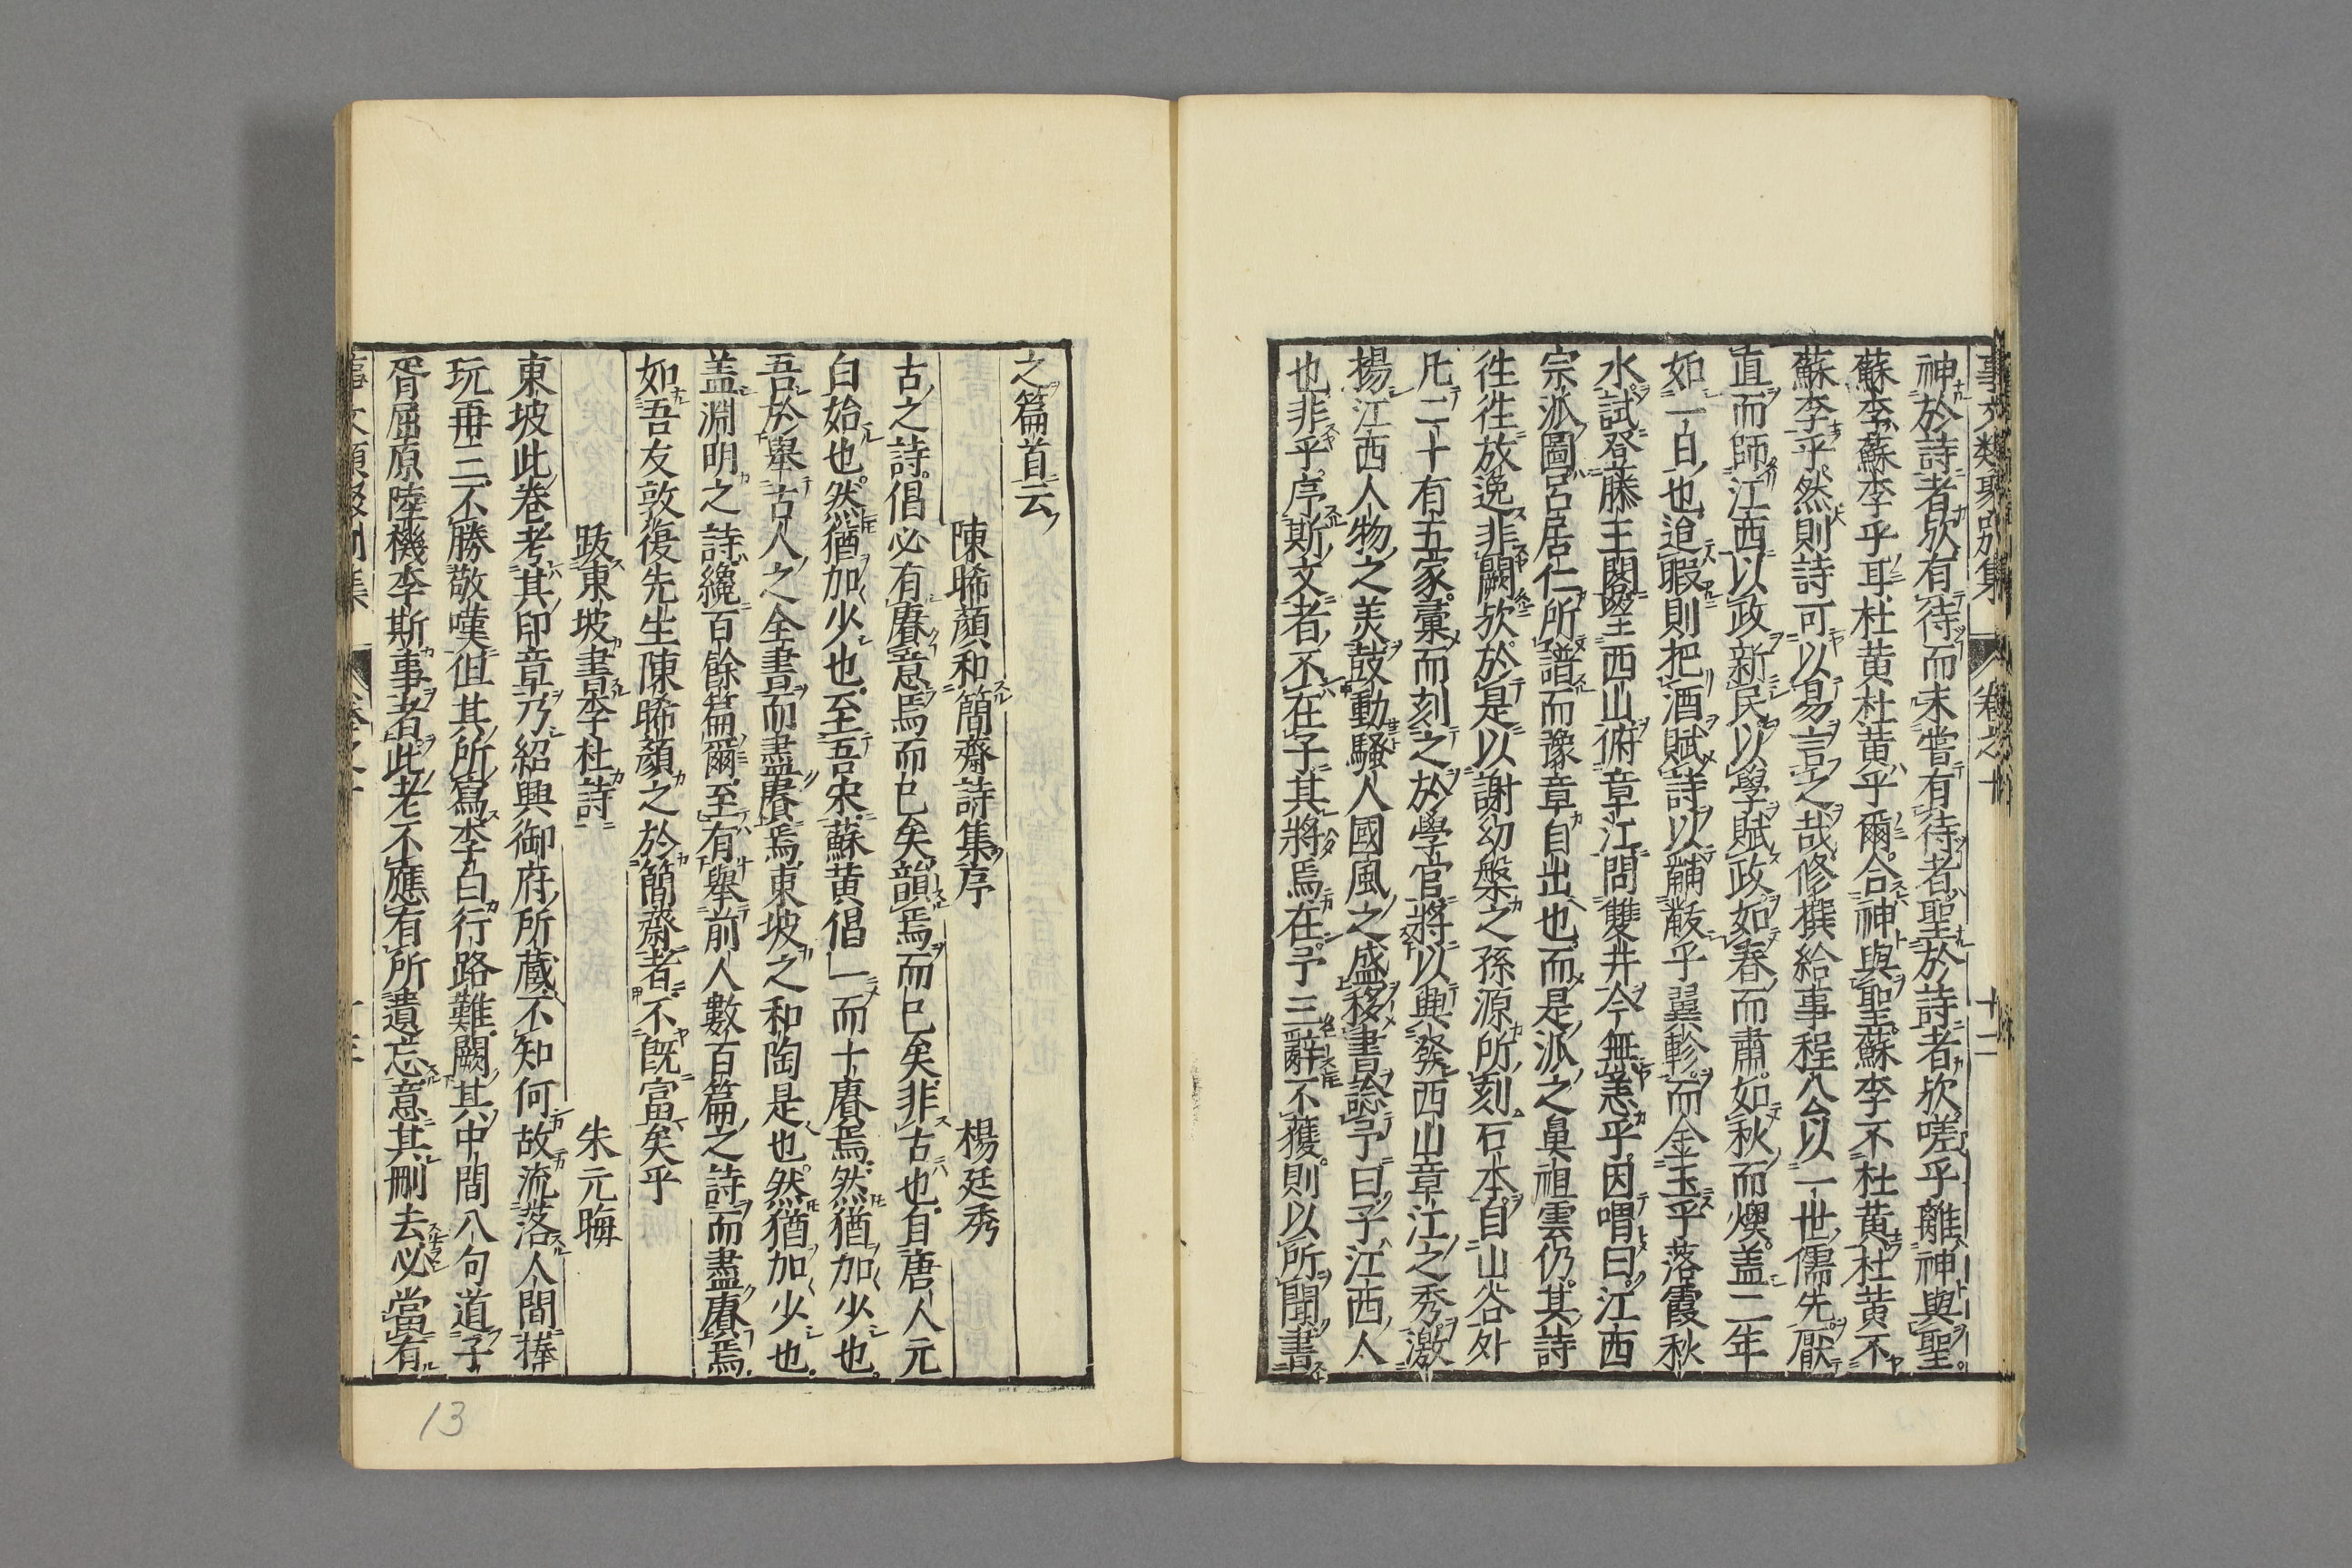 事文類聚別集 卷之十 十二
神於詩者歟有待而未嘗有待者聖於詩者歟嗟乎離神與聖
蘇李蘇李乎耳杜黄杜黄乎爾合神與聖蘇李不杜黄杜黄不
蘇李乎然則詩可以易言之哉修撰給事程公以一世儒先厭
直而師江西以政新民以學賦政如春而肅如秋而燠盖二年
如一日也追暇則把酒賦詩以黼黻乎翼軫而金玉乎落霞秋
水試登滕王閣望西山俯章江問雙井今無恙乎因喟曰江西
宗派圖呂居仁所譜而豫章自出也而是派之鼻祖雲仍其詩
徃徃放逸非闕歟於是以謝幼槃之孫源所刻石本自山谷外
凡二十有五家彙而刻之於學官將以興發西山章江之秀激
揚江西人物之美鼓動騷人國風之盛移書諗予曰子江西人
也非乎序斯文者不在子其將焉在予三辭不獲則以所聞書
之篇首云
陳晞顔和簡齋詩集序 楊廷秀
古之詩倡必有賡意焉而已矣韻焉而已矣非古也自唐人元
白始也然猶加少也至吾宋蘇黄倡一而十賡焉然猶加少也
吾於舉古人之全書而盡賡焉東坡之和陶是也然猶加少也
盖淵明之詩纔百餘篇爾至有舉前人數百篇之詩而盡賡焉
如吾友敦復先生陳晞顔之於簡齋者不既富矣乎
跋東坡書李杜詩 朱元晦
東坡此卷考其印章乃紹興御府所藏不知何故流落人間捧
玩再三不勝敬嘆但其所寫李白行路難闕其中間八句道子
胥屈原陸機李斯事者此老不應有所遺忘意其刪去必當有
13